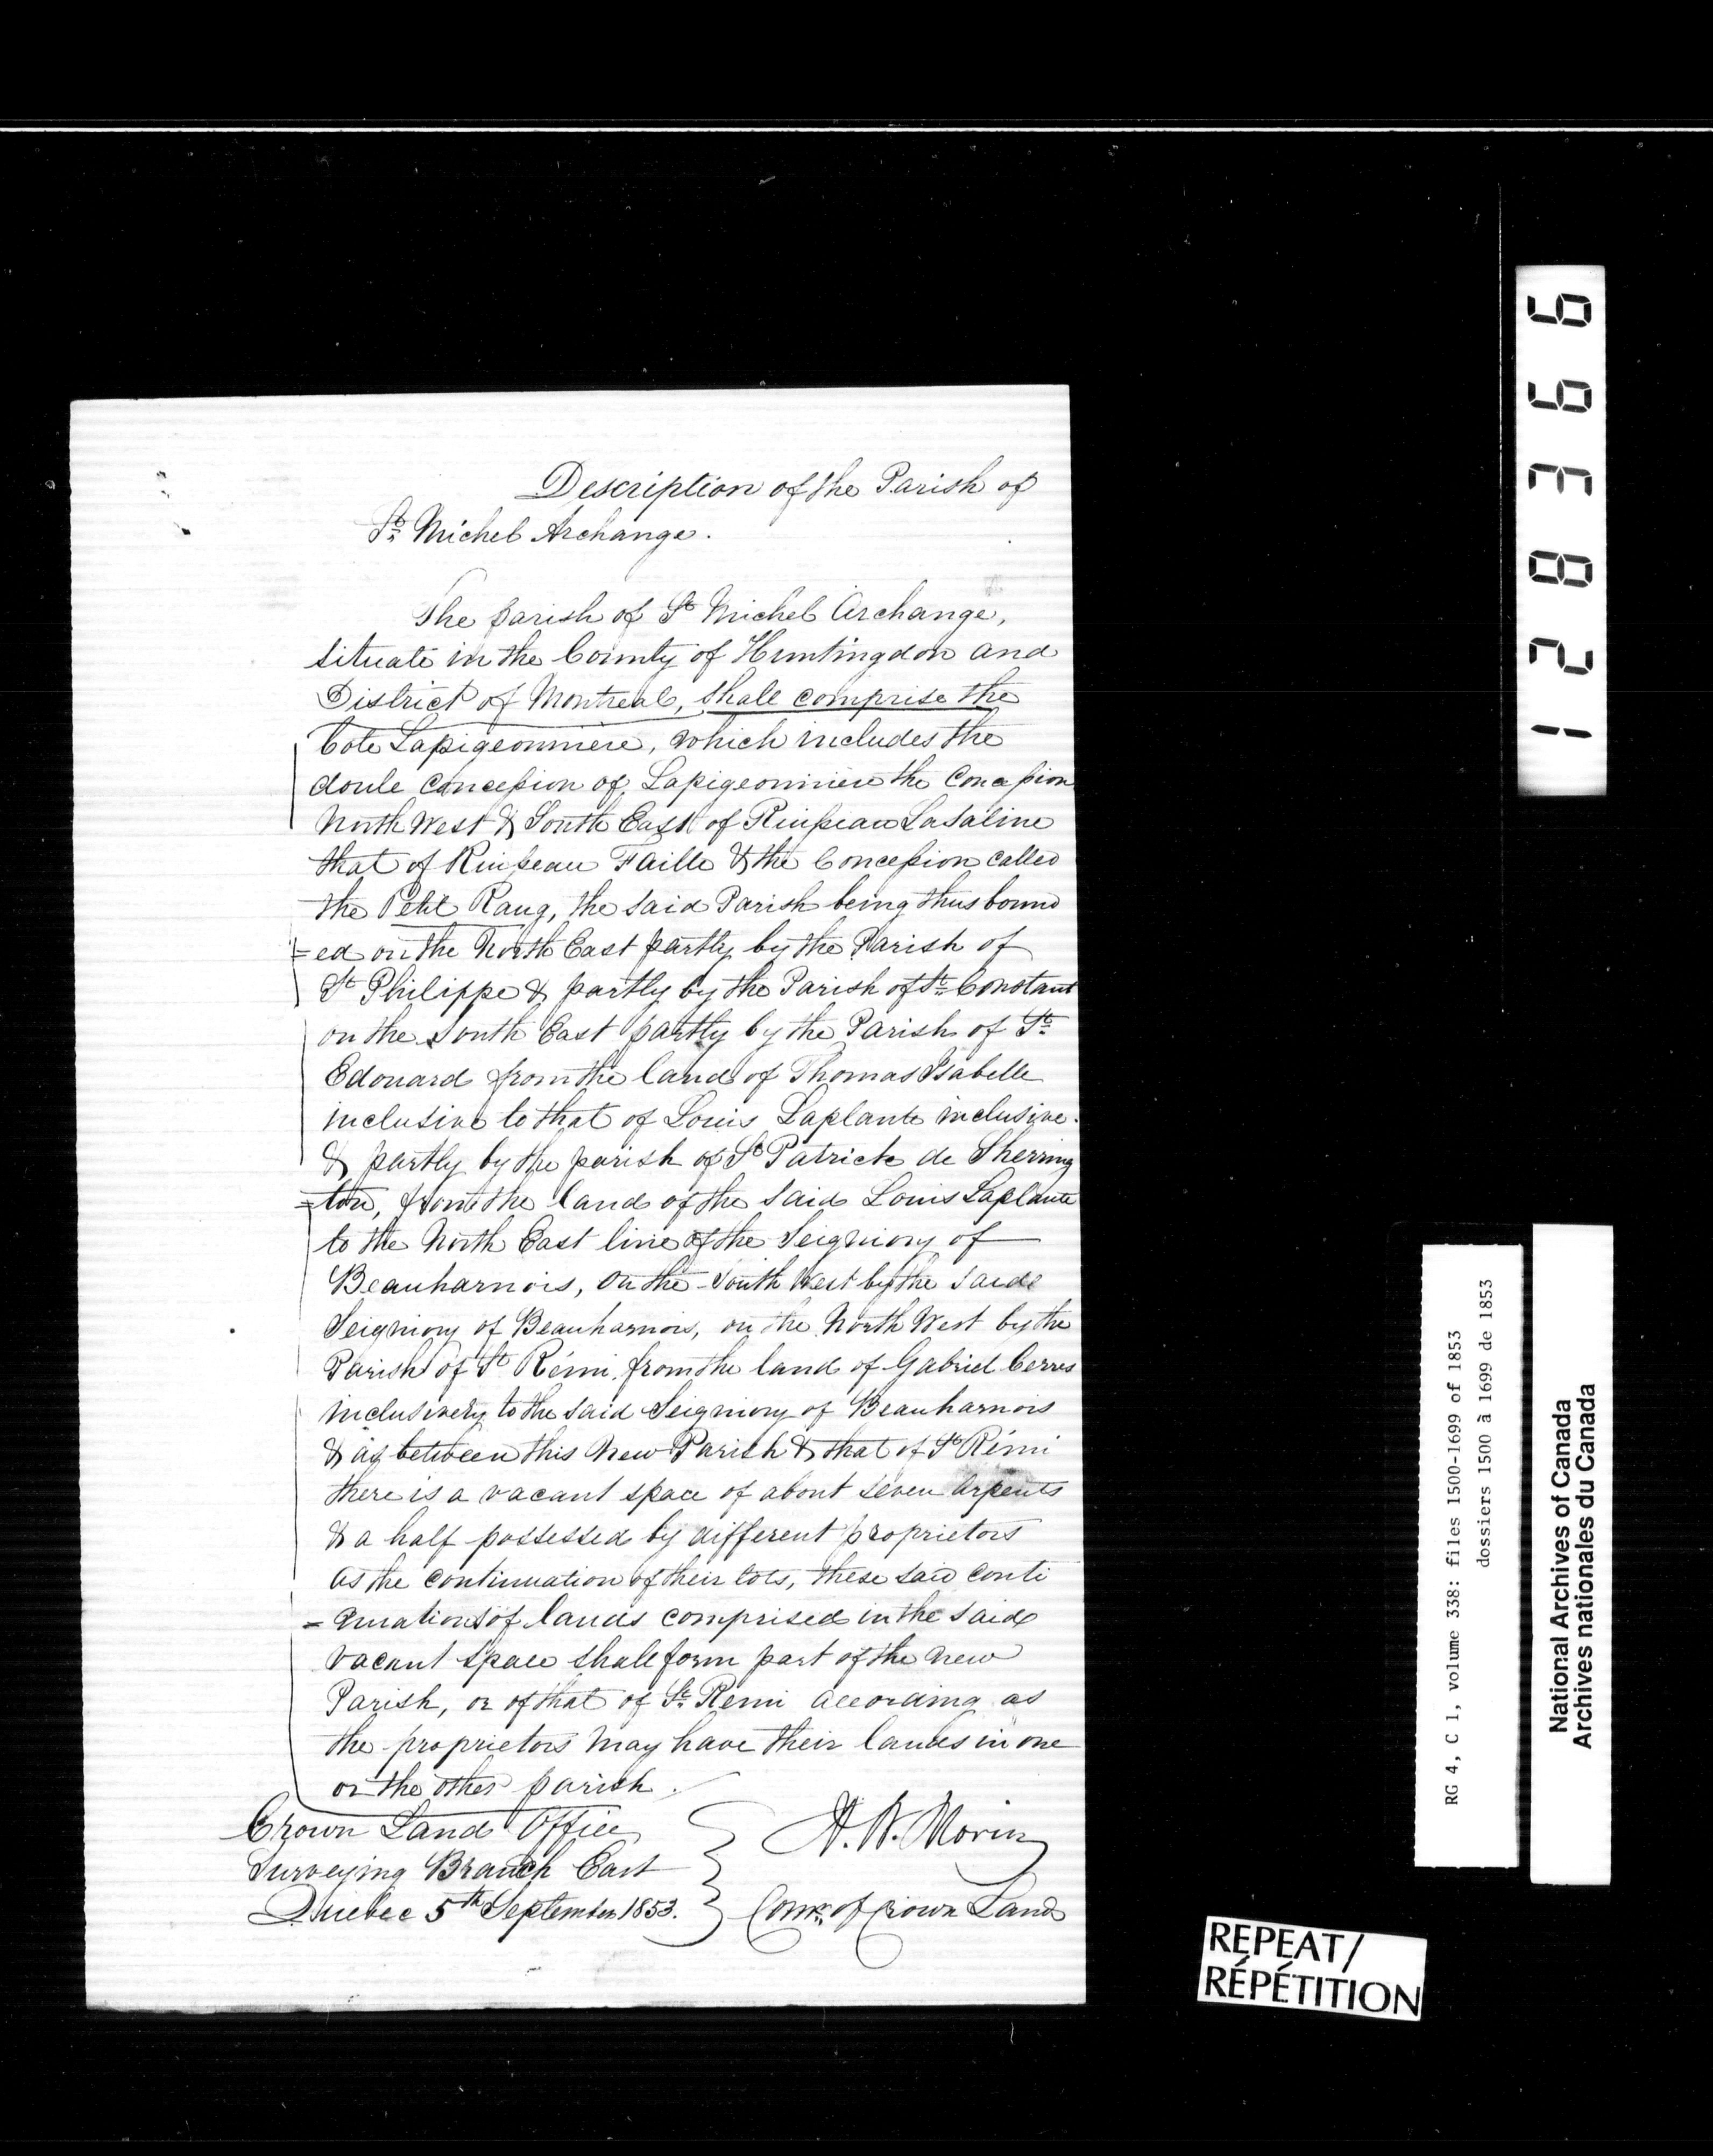 Description of the Parish of
St. Michel Archange.
The parish of St Michel Archange,
situate in the County of Huntingdon and
District of Montreal, shall comprise the
Cote Lapigeonniere, which includes the
doule Concession of Lapigeonniere the Concession
North West & South East of Ruisseau Lasaline
that of Ruisseau Faille & the Concession called
the Petit Rang, the said Parish being thus bound
=ed on the North East partly by the Parish of
St Philippe & partly by the Parish of St. Constant
on the South East partly by the Parish of St.
Edouard from the land of Thomas Isabelle
inclusive to that of Louis Laplante inclusive.
& partly by the parish of St Patrick de Sherring
=ton, from the land of the said Louis Laplante
to the North East line of the Seigniory of
Beauharnois, on the South West by the said
Seigniory of Beauharnois, on the North West by the
Parish of St Rémi from the land of Gabriel
inclusively to the said Seigniory of Beauharnois
& as between this New Parish & that of St Rémi
there is a vacant space of about seven Arpents
& a half possessed by different proprietors
as the continuation of their lots, these said conti
=nuations of lands comprised in the said
vacant space shall form part of the new
Parish, or of that of St. Remi according as
the proprietors may have their lands in one
or the other parish.
Crown Land Office
Surveying Branch East
Quebec 5th September 1853.
A. N. Morin
Comr. of Crown Lands
128366
RG 4, C 1, volume 338: files 1500-1699 of 1853
dossiers 1500 à 1699 de 1853
National Archives of Canada
Archives nationales du Canada
REPEAT/
RÉPÉTITION